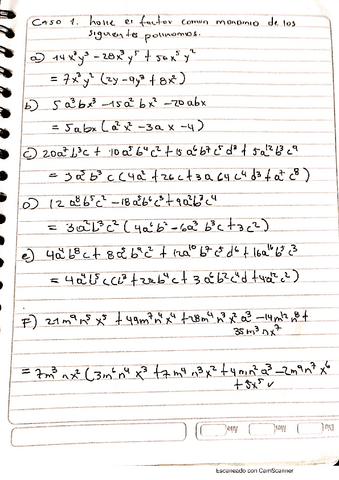 Caso 1. halle el factor comun monomio de los
siguientes polinomios.
a) 14x³y³ - 28x³y⁵ + 56x⁵y²
= 7x²y² (2y - 4y³ + 8x²)
b) 5a³bx³ - 15a²bx² - 20abx
= 5abx (a²x² - 3ax - 4)
c) 20a⁷b³c + 10a⁵b⁴c² + 15a⁶b⁷c⁵d³ + 5a¹²b³c⁹
d) 12a⁸b⁵c² - 18a⁵b⁶c³ + 9a²b³c⁴
= 3a²b³c² (4a⁶b² - 6a³b³c + 3c²)
e) 4a⁴b⁸c + 8a⁵b⁹c² + 12a¹⁰b⁷c⁵d⁶ + 16a¹⁶b⁵c³
F) 21m⁹n⁵x⁵ + 49m⁷n⁴x⁴ + 28m⁴n³x²a³ - 14m¹²n⁸ +
35m³nx⁷
= 7m³nx² (3m⁶n⁴x³ + 7m⁴n³x² + 4mn²a³ - 2m⁹n⁷x⁶
+ 5x⁵
Escaneado con CamScanner